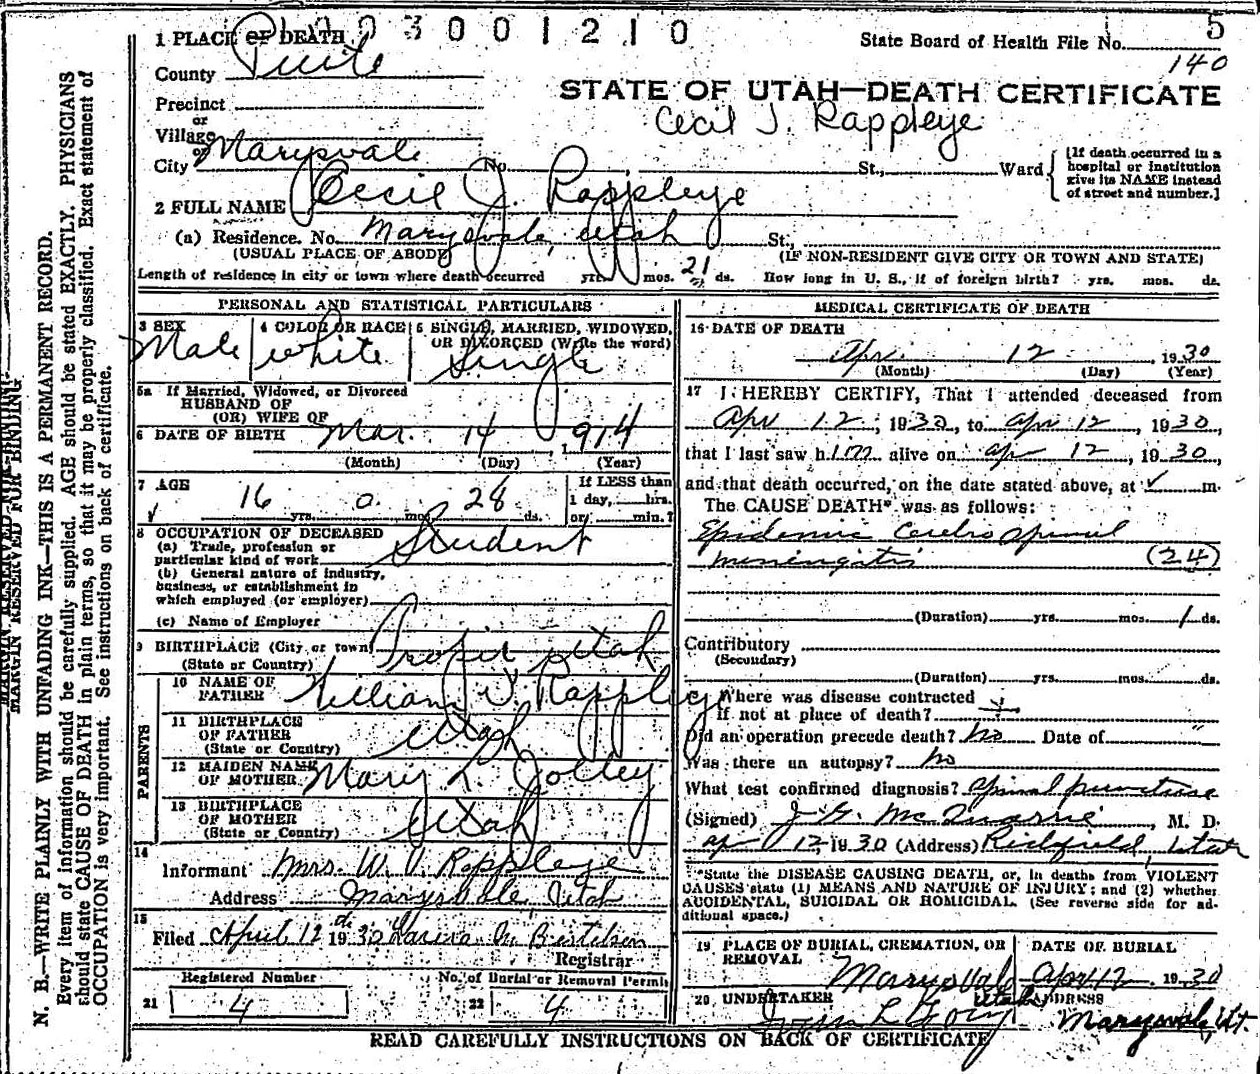 003001210 5
1 PLACE OF DEATH
State Board of Health File No. 140
County Piute
STATE OF UTAH—DEATH CERTIFICATE
Precinct
or
Village
Cecil J. Rappleye
or
City Marysvale No. St., Ward
[If death occurred in a hospital or institution give its NAME instead of street and number.]
2 FULL NAME Cecil J. Rappleye
(a) Residence. No. Marysvale, Utah St.,
(USUAL PLACE OF ABODE) (IF NON-RESIDENT GIVE CITY OR TOWN AND STATE)
Length of residence in city or town where death occurred yrs. mos. 21 ds. How long in U. S., if of foreign birth? yrs. mos. ds.
PERSONAL AND STATISTICAL PARTICULARS
3 SEX Male
4 COLOR OR RACE White
5 SINGLE, MARRIED, WIDOWED, OR DIVORCED (Write the word) Single
5a If Married, Widowed, or Divorced
HUSBAND OF
(OR) WIFE OF
6 DATE OF BIRTH Mar. 14, 1914
(Month) (Day) (Year)
7 AGE 16 yrs. 0 mos. 28 ds.
If LESS than
1 day, hrs.
or min.?
8 OCCUPATION OF DECEASED
(a) Trade, profession or
particular kind of work Student
(b) General nature of industry,
business, or establishment in
which employed (or employer)
(c) Name of Employer
9 BIRTHPLACE (City or town)
(State or Country) Utah
PARENTS
10 NAME OF FATHER William V. Rappleye
11 BIRTHPLACE OF FATHER
(State or Country) Utah
12 MAIDEN NAME OF MOTHER Mary L. Jolley
13 BIRTHPLACE OF MOTHER
(State or Country) Utah
14
Informant Mrs. W. V. Rappleye
Address Marysvale, Utah
15
Filed April 12 1930
Registrar
Registered Number
21 4
No. of Burial or Removal Permit
22 4
MEDICAL CERTIFICATE OF DEATH
16 DATE OF DEATH
Apr. 12, 1930
(Month) (Day) (Year)
17 I HEREBY CERTIFY, That I attended deceased from
Apr 12, 1930, to Apr 12, 1930,
that I last saw him alive on Ap 12, 1930,
and that death occurred, on the date stated above, at ✓ m.
The CAUSE DEATH* was as follows:
Epidemic Cerebro Spinal
meningitis (24)
(Duration) yrs. mos. 1 ds.
Contributory
(Secondary)
(Duration) yrs. mos. ds.
Where was disease contracted
If not at place of death?
Did an operation precede death? No Date of
Was there an autopsy? no
What test confirmed diagnosis? spinal puncture
(Signed) J. G. McQuarrie, M. D.
Ap 12, 1930 (Address) Richfield, Utah
*State the DISEASE CAUSING DEATH, or, in deaths from VIOLENT
CAUSES state (1) MEANS AND NATURE OF INJURY; and (2) whether
ACCIDENTAL, SUICIDAL OR HOMICIDAL. (See reverse side for ad-
ditional space.)
19 PLACE OF BURIAL, CREMATION, OR REMOVAL Marysvale Utah
DATE OF BURIAL Apr 12 1930
20 UNDERTAKER
ADDRESS Marysvale Ut.
READ CAREFULLY INSTRUCTIONS ON BACK OF CERTIFICATE
MARGIN RESERVED FOR BINDING
N. B.—WRITE PLAINLY WITH UNFADING INK—THIS IS A PERMANENT RECORD.
Every item of information should be carefully supplied. AGE should be stated EXACTLY. PHYSICIANS
should state CAUSE OF DEATH in plain terms, so that it may be properly classified. Exact statement of
OCCUPATION is very important. See instructions on back of certificate.